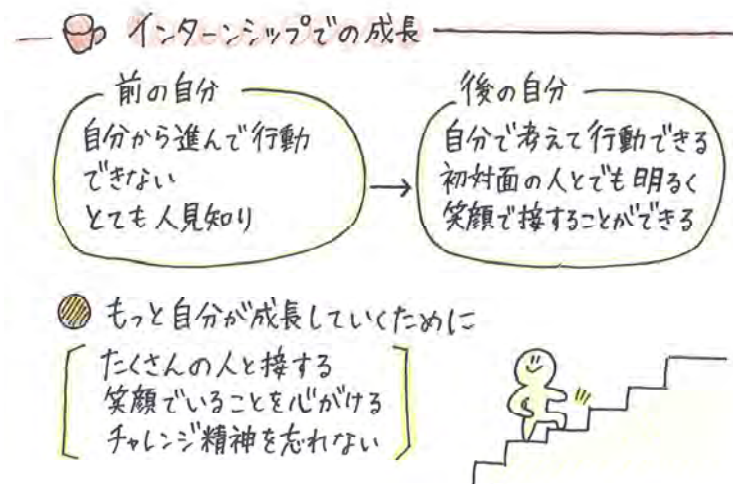 インターンシップでの成長
前の自分
自分から進んで行動
できない
とても人見知り
後の自分
自分で考えて行動できる
初対面の人とでも明るく
笑顔で接することができる
もっと自分が成長していくために
たくさんの人と接する
笑顔でいることを心がける
チャレンジ精神を忘れない